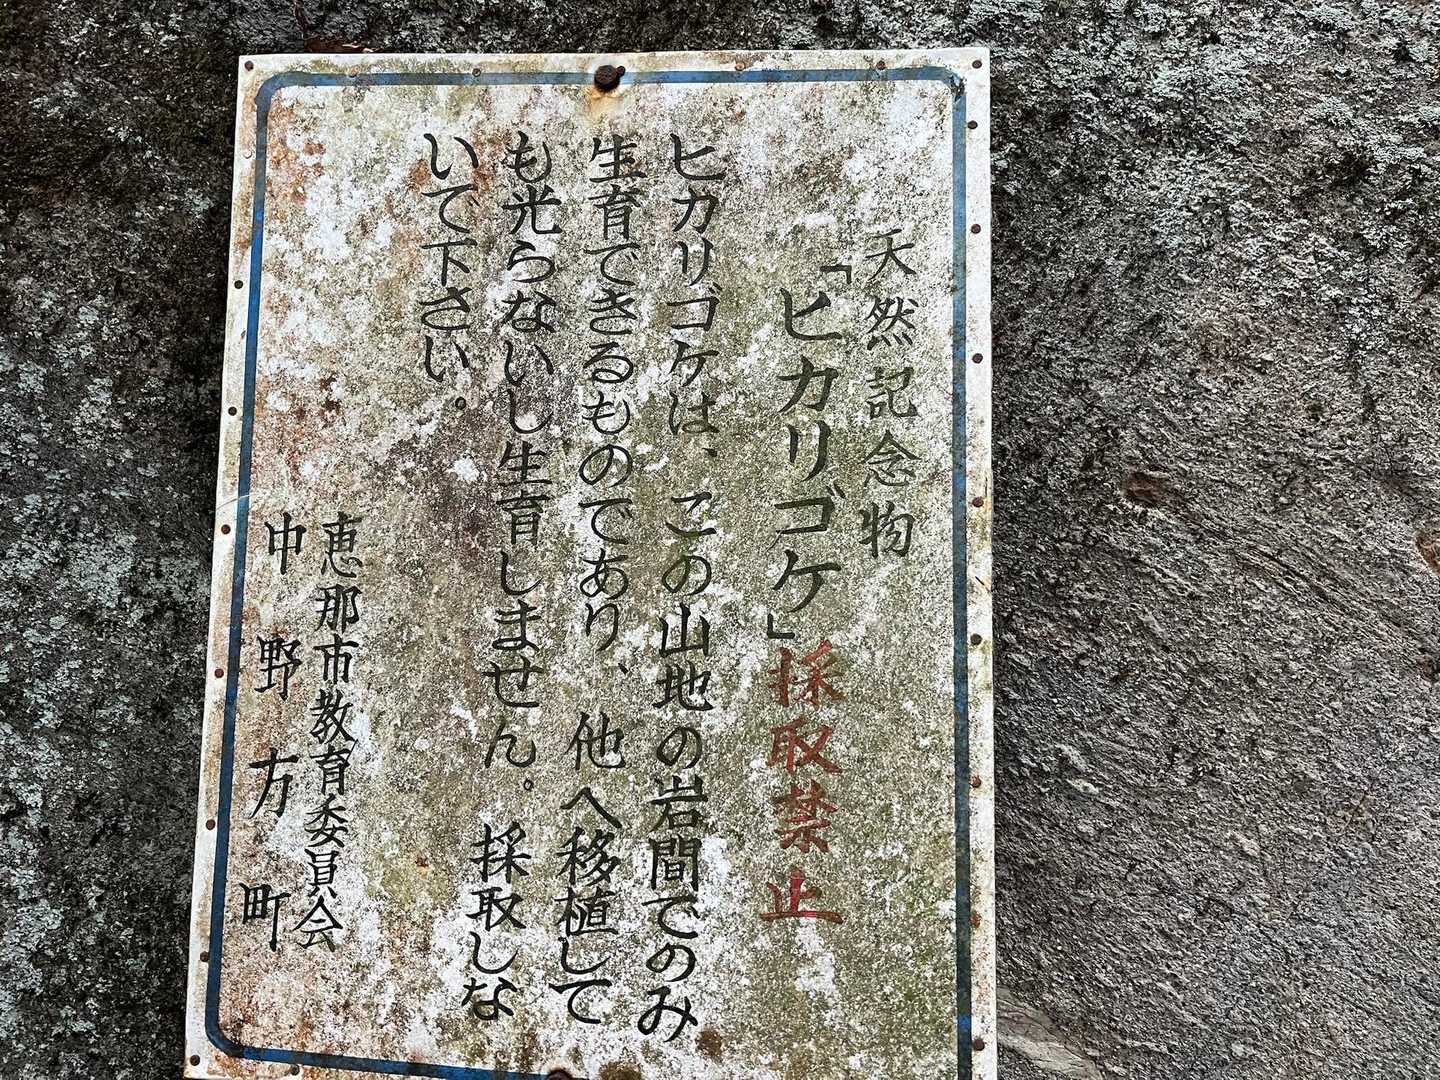 天然記念物
「ヒカリゴケ」採取禁止
ヒカリゴケは、この山地の岩間でのみ
生育できるものであり、他へ移植して
も光らないし生育しません。採取しな
いで下さい。
恵那市教育委員会
中野方町